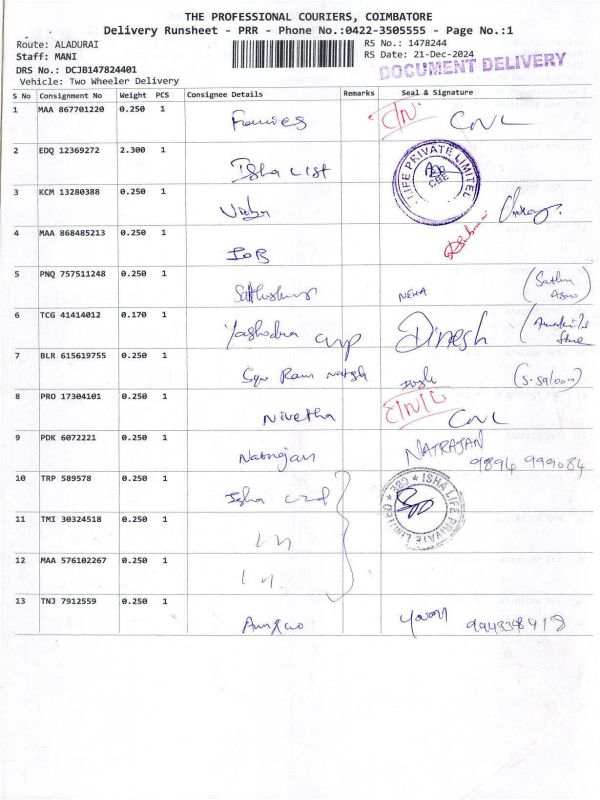 THE PROFESSIONAL COURIERS, COIMBATORE
Delivery Runsheet - PRR - Phone No.:0422-3505555 - Page No.:1
Route: ALADURAI
RS No.: 1478244
Staff: MANI
RS Date: 21-Dec-2024
DRS No.: DCJB147824401
DOCUMENT DELIVERY
Vehicle: Two Wheeler Delivery
S No Consignment No Weight PCS Consignee Details Remarks Seal & Signature
1 MAA 867701220 0.250 1 CNL
2 EDQ 12369272 2.300 1 Isha LIFE PRIVATE LIMITED CBE
3 KCM 13280388 0.250 1
4 MAA 868485213 0.250 1 IOB
5 PNQ 757511248 0.250 1 NEHA
6 TCG 41414012 0.170 1 Yashodra Dinesh
7 BLR 615619755 0.250 1 Ram (S.Saloon)
8 PRO 17304101 0.250 1 Nivetha CNL
9 PDK 6072221 0.250 1 Natrajan NATRAJAN
9894 999084
10 TRP 589578 0.250 1 Isha ISHA LIFE PRIVATE LIMITED CBE
11 TMI 30324518 0.250 1
12 MAA 576102267 0.250 1
13 TNJ 7912559 0.250 1